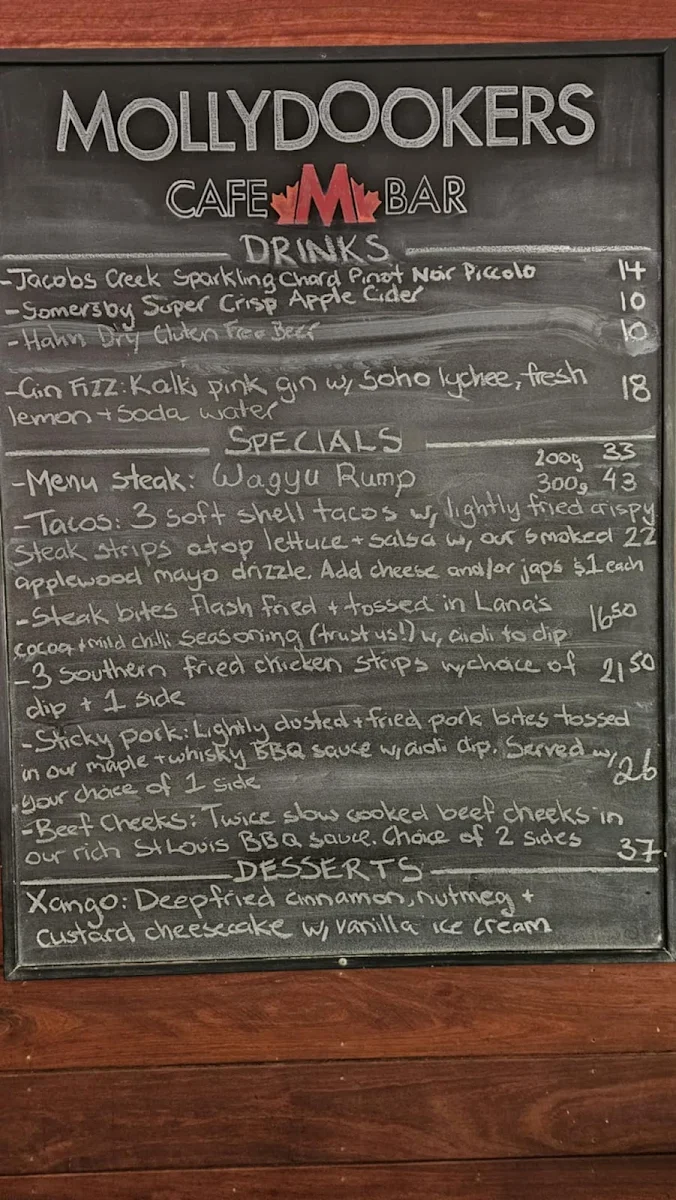 MOLLYDOOKERS
CAFE M BAR
DRINKS
-Jacobs Creek Sparkling Chard Pinot Noir Piccolo 14
-Somersby Super Crisp Apple Cider 10
-Hahn Dry Gluten Free Beer 10
-Gin Fizz: Kalki pink gin w/ Soho lychee, fresh 18
lemon + Soda water
SPECIALS
200g 33
-Menu steak: Wagyu Rump 300g 43
-Tacos: 3 soft shell tacos w/ lightly fried crispy
steak strips atop lettuce + salsa w/ our smoked 22
applewood mayo drizzle. Add cheese and/or japs $1 each
-Steak bites flash fried + tossed in Lana's 16 50
cocoa + mild chilli seasoning (trust us!) w/ aioli to dip
-3 Southern fried chicken strips w/choice of 21 50
dip + 1 side
-Sticky pork: Lightly dusted + fried pork bites tossed
in our maple + whisky BBQ sauce w/ aioli dip. Served w/ 26
your choice of 1 side
-Beef Cheeks: Twice slow cooked beef cheeks in
our rich St Louis BBQ sauce. Choice of 2 sides 37
DESSERTS
Xango: Deepfried cinnamon, nutmeg +
custard cheesecake w/ vanilla ice cream